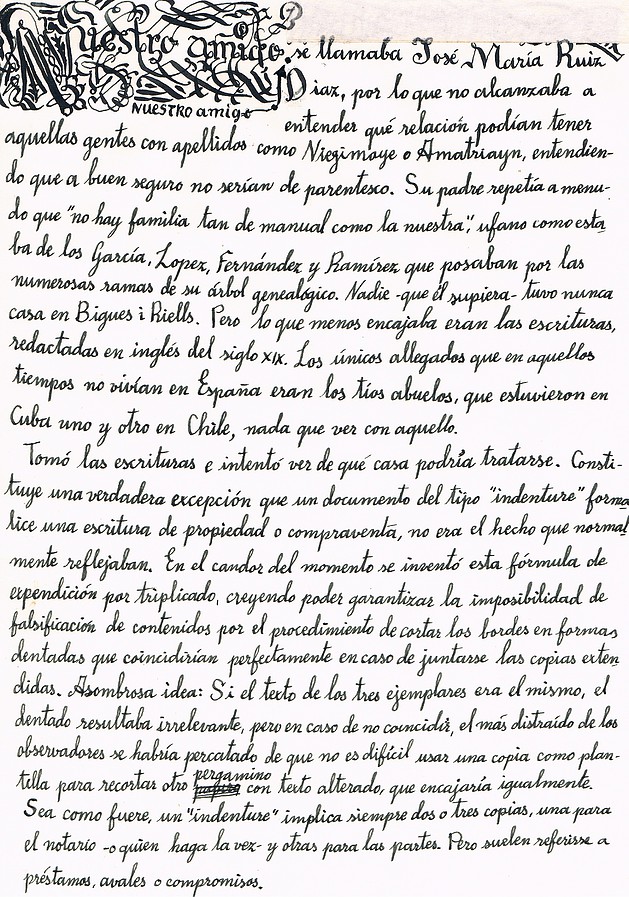 Nuestro amigo. se llamaba José María Ruiz
Diaz, por lo que no alcanzaba a
NUESTRO amigo
entender qué relación podían tener
aquellas gentes con apellidos como Niegimoye o Amatriayn, entendien-
do que a buen seguro no serían de parentesco. Su padre repetía a menu-
do que "no hay familia tan de manual como la nuestra", ufano como esta
ba de los García, Lopez, Fernández y Ramírez que posaban por las
numerosas ramas de su árbol genealógico. Nadie -que él supiera- tuvo nunca
casa en Bigues i Riells. Pero lo que menos encajaba eran las escrituras,
redactadas en inglés del siglo XIX. Los únicos allegados que en aquellos
tiempos no vivían en España eran los tíos abuelos, que estuvieron en
Cuba uno y otro en Chile, nada que ver con aquello.
Tomó las escrituras e intentó ver de qué casa podría tratarse. Consti-
tuye una verdadera excepción que un documento del tipo "indenture" forma
lice una escritura de propiedad o compraventa, no era el hecho que normal
mente reflejaban. En el candor del momento se inventó esta fórmula de
expendición por triplicado, creyendo poder garantizar la imposibilidad de
falsificación de contenidos por el procedimiento de cortar los bordes en formas
dentadas que coincidirían perfectamente en caso de juntarse las copias exten
didas. Asombrosa idea: Si el texto de los tres ejemplares era el mismo, el
dentado resultaba irrelevante, pero en caso de no coincidir, el más distraído de los
observadores se habría percatado de que no es difícil usar una copia como plan-
tilla para recortar otro pergamino con texto alterado, que encajaría igualmente.
Sea como fuere, un "indenture" implica siempre dos o tres copias, una para
el notario -o quien haga la vez- y otras para las partes. Pero suelen referirse a
préstamos, avales o compromisos.